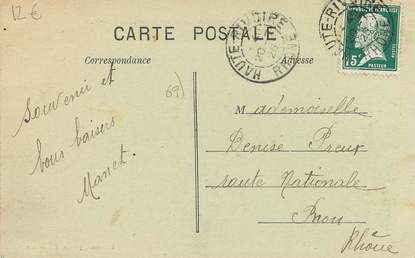 12 €
CARTE POSTALE
Correspondance
Adresse
HAUTE-RIVOIRE RHONE
HAUTE-RIVOIRE RHONE
15
PASTEUR
69)
Souvenir et
bons baisers
Manet.
Mademoiselle
Denise Preux
route Nationale
Bron
Rhône